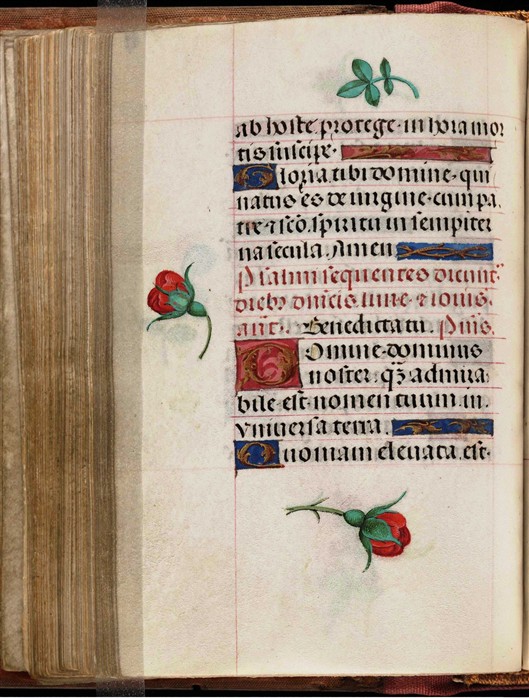 ab hoste protege. in hora mor
tis suscipe.
Gloria tibi domine. qui
natus es de uirgine. cum pa
tre ⁊ sc̄o. spiritu in sempiter
na secula. Amen
Psalmi sequentes dicunt᷑
dieb₉ dn̄icis. lune. ⁊ iouis.
ant. Benedicta tu. Ps̄us.
Domine dominus
noster. qꝫ admira
bile est. nomen tuum in.
vniuersa terra.
Quoniam eleuata. est.